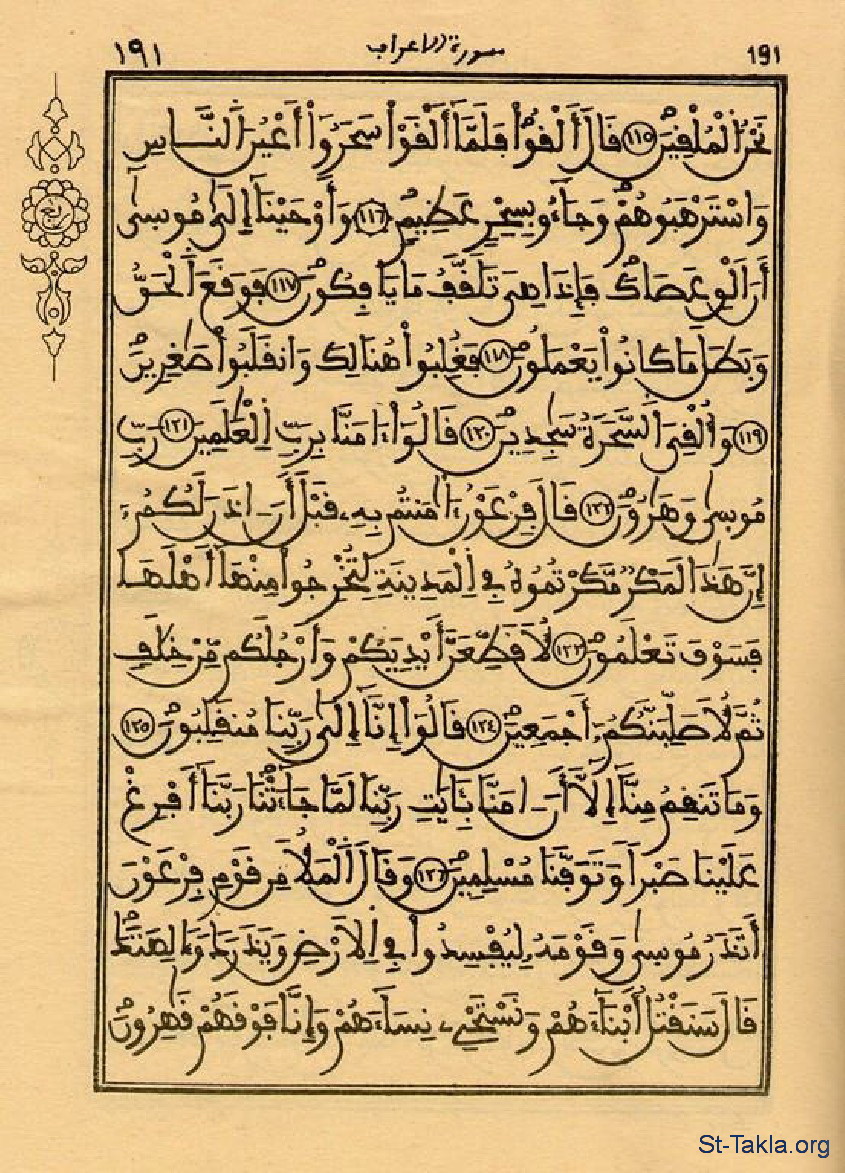 191 سورة الاعراف ١٩١
نَحْنُ اُ۬لْمُلْقِينَ ١١٥ قَالَ أَلْقُواْ فَلَمَّآ أَلْقَوْاْ سَحَرُوٓاْ أَعْيُنَ اَ۬لنَّاسِ
وَاسْتَرْهَبُوهُمْ وَجَآءُو بِسِحْرٍ عَظِيمٍ ١١٦ وَأَوْحَيْنَآ إِلَىٰ مُوسىٰٓ
أَنَ اَلْقِ عَصَاكَ فَإِذَا هِيَ تَلَقَّفُ مَا يَافِكُونَ ١١٧ فَوَقَعَ اَ۬لْحَقُّ
وَبَطَلَ مَا كَانُواْ يَعْمَلُونَ ١١٨ فَغُلِبُواْ هُنَالِكَ وَانقَلَبُواْ صَٰغِرِينَ
١١٩ وَأُلْقِيَ اَ۬لسَّحَرَةُ سَٰجِدِينَ ١٢٠ قَالُوٓاْ ءَامَنَّا بِرَبِّ اِ۬لْعَٰلَمِينَ ١٢١ رَبِّ
مُوسىٰ وَهَٰرُونَ ١٢٢ قَالَ فِرْعَوْنُ ءَا۬مَنتُم بِهِۦ قَبْلَ أَنَ اٰذَنَ لَكُمُۥٓ
إِنَّ هَٰذَا لَمَكْرٌ مَّكَرْتُمُوهُ فِي اِ۬لْمَدِينَةِ لِتُخْرِجُواْ مِنْهَآ أَهْلَهَا
فَسَوْفَ تَعْلَمُونَ ١٢٣ لَأُقَطِّعَنَّ أَيْدِيَكُمْ وَأَرْجُلَكُم مِّنْ خِلَٰفٍ
ثُمَّ لَأُصَلِّبَنَّكُمُۥٓ أَجْمَعِينَ ١٢٤ قَالُوٓاْ إِنَّآ إِلَىٰ رَبِّنَا مُنقَلِبُونَ ١٢٥
وَمَا تَنقِمُ مِنَّآ إِلَّآ أَنَ اٰمَنَّا بِـَٔايَٰتِ رَبِّنَا لَمَّا جَآءَتْنَا رَبَّنَآ أَفْرِغْ
عَلَيْنَا صَبْراً وَتَوَفَّنَا مُسْلِمِينَ ١٢٦ وَقَالَ اَ۬لْمَلَأُ مِن قَوْمِ فِرْعَوْنَ
أَتَذَرُ مُوسىٰ وَقَوْمَهُۥ لِيُفْسِدُواْ فِي اِ۬لَارْضِ وَيَذَرَكَ وَءَالِهَتَكَ
قَالَ سَنَقْتُلُ أَبْنَآءَهُمْ وَنَسْتَحْيِۦ نِسَآءَهُمْ وَإِنَّا فَوْقَهُمْ قَٰهِرُونَ
ربع
St-Takla.org